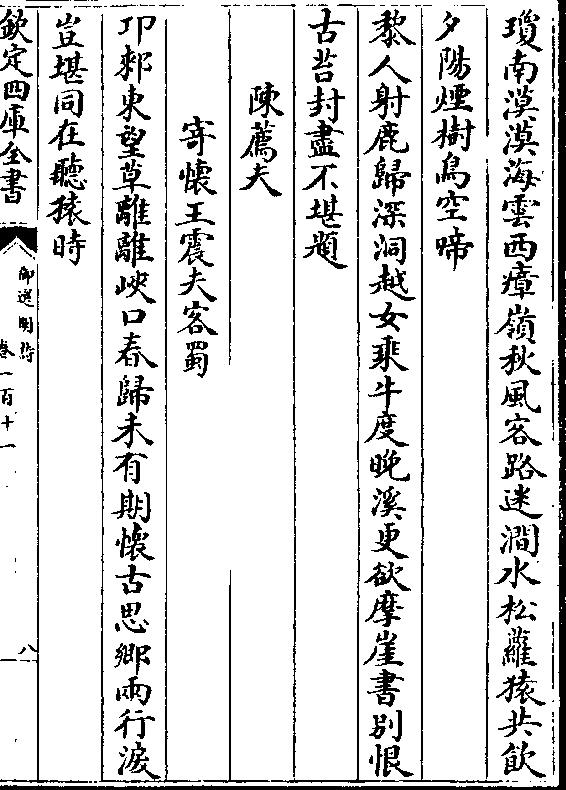 瓊南漠漠海雲西瘴嶺秋風客路迷澗水松蘿猿共飲
夕陽煙樹鳥空啼
黎人射鹿歸深洞越女乘牛度晚溪更欲摩崖書別恨
古苔封盡不堪題
陳薦夫
寄懷王震夫客蜀
卭郲東望草離離峽口春歸未有期懷古思鄉兩行淚
豈堪同在聽猿時
欽定四庫全書
御選明詩
卷一百十一
八